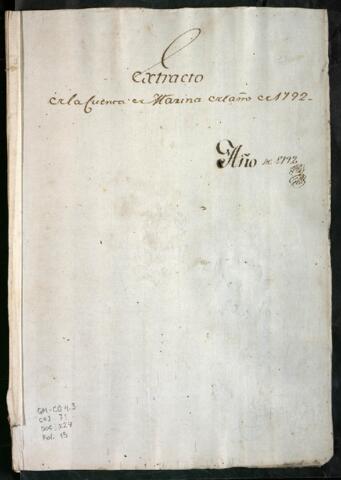 Extracto
de la Cuenta de Marina del año de 1792.
Año de 1792
GM-CO 4.3
CAJ 71
DOC 324
Fol. 15